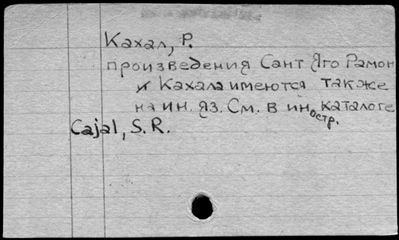 Кахал, Р.
произведения Сант Яго Рамон
и Кахала имеются также
на ин. яз. См. в иностр. каталоге
Cajal, S. R.